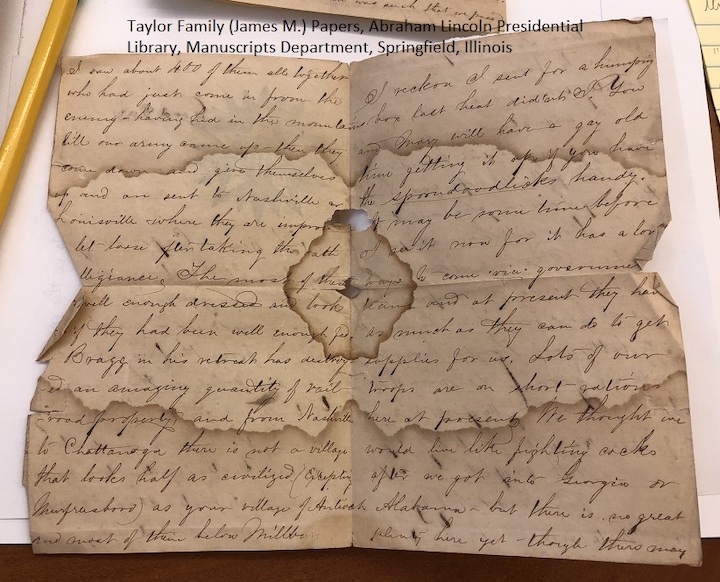 Taylor Family (James M.) Papers, Abraham Lincoln Presidential
Library, Manuscripts Department, Springfield, Illinois
I saw about 400 of them all together
who had just come in from the
enemy - having hid in the mountains
till our army came up - then they
come down and give themselves
up and are sent to Nashville or
where they are
let loose after taking the oath
The most of them
well enough dressed and look
if they had been well enough fed
Bragg in his retreat has destroy
ed an amazing quantity of rail
-road property and from Nashville
to Chattanooga there is not a village
that looks half as civilized (Excepting
Murfreesboro) as your village of Antioch
and most of them below
I reckon I sent for a
box last heat didn't I? You
and Mary will have a gay old
time getting it up if you have
the handy.
It may be some time before
I see it now for it has a long
ways to come via government
teams and at present they have
as much as they can do to get
supplies for us. Lots of our
troops are on short rations
here at present. We thought we
would live like fighting cocks
after we got into Georgia or
Alabama - but there is no great
plenty here yet - though there may